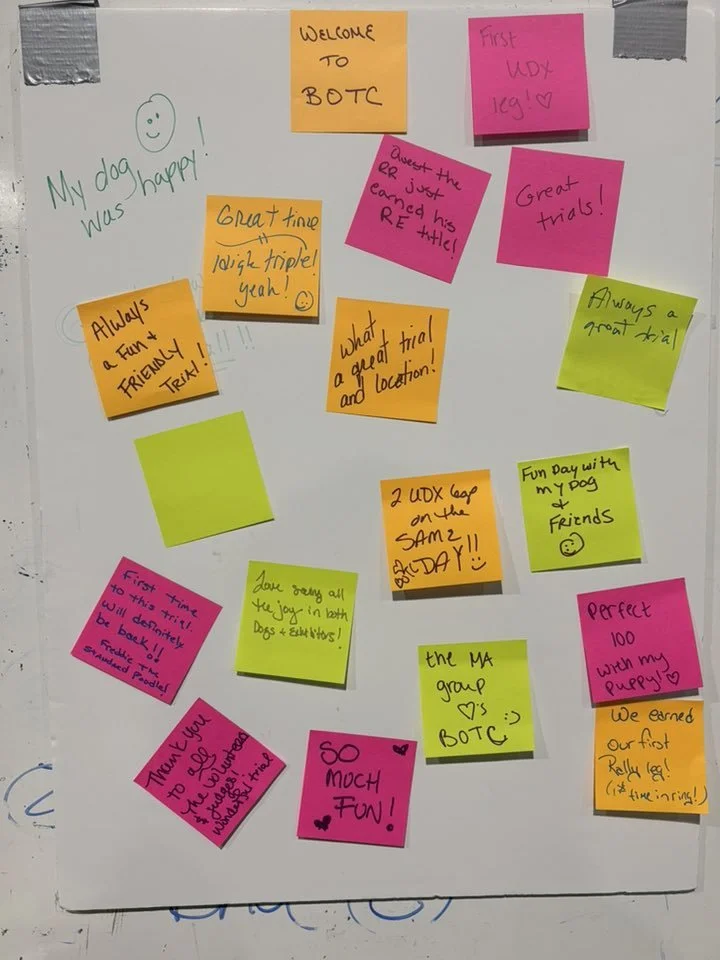 WELCOME
TO
BOTC
First
UDX
leg! ♡
My dog
was happy!
Quest the
RR just
earned his
RE title!
Great
trials!
Great time
High triple!
yeah!
Always
a Fun &
FRIENDLY
TRIAL!
What
a great trial
and location!
Always a
great trial
2 UDX legs
on the
SAME
DAY!!
Fun Day with
my Dog
&
Friends
First time
to this trial.
Will definitely
be back!!
Freddie The
Standard Poodle!
Love seeing all
the joy in both
Dogs & Exhibitors!
the MA
group
♡'s :)
BOTC
Perfect
100
with my
puppy! ♡
We earned
our first
Rally leg!
(1st time in ring!)
Thank you
to all
the volunteers
& judges!
Wonderful trial
SO
MUCH
FUN!